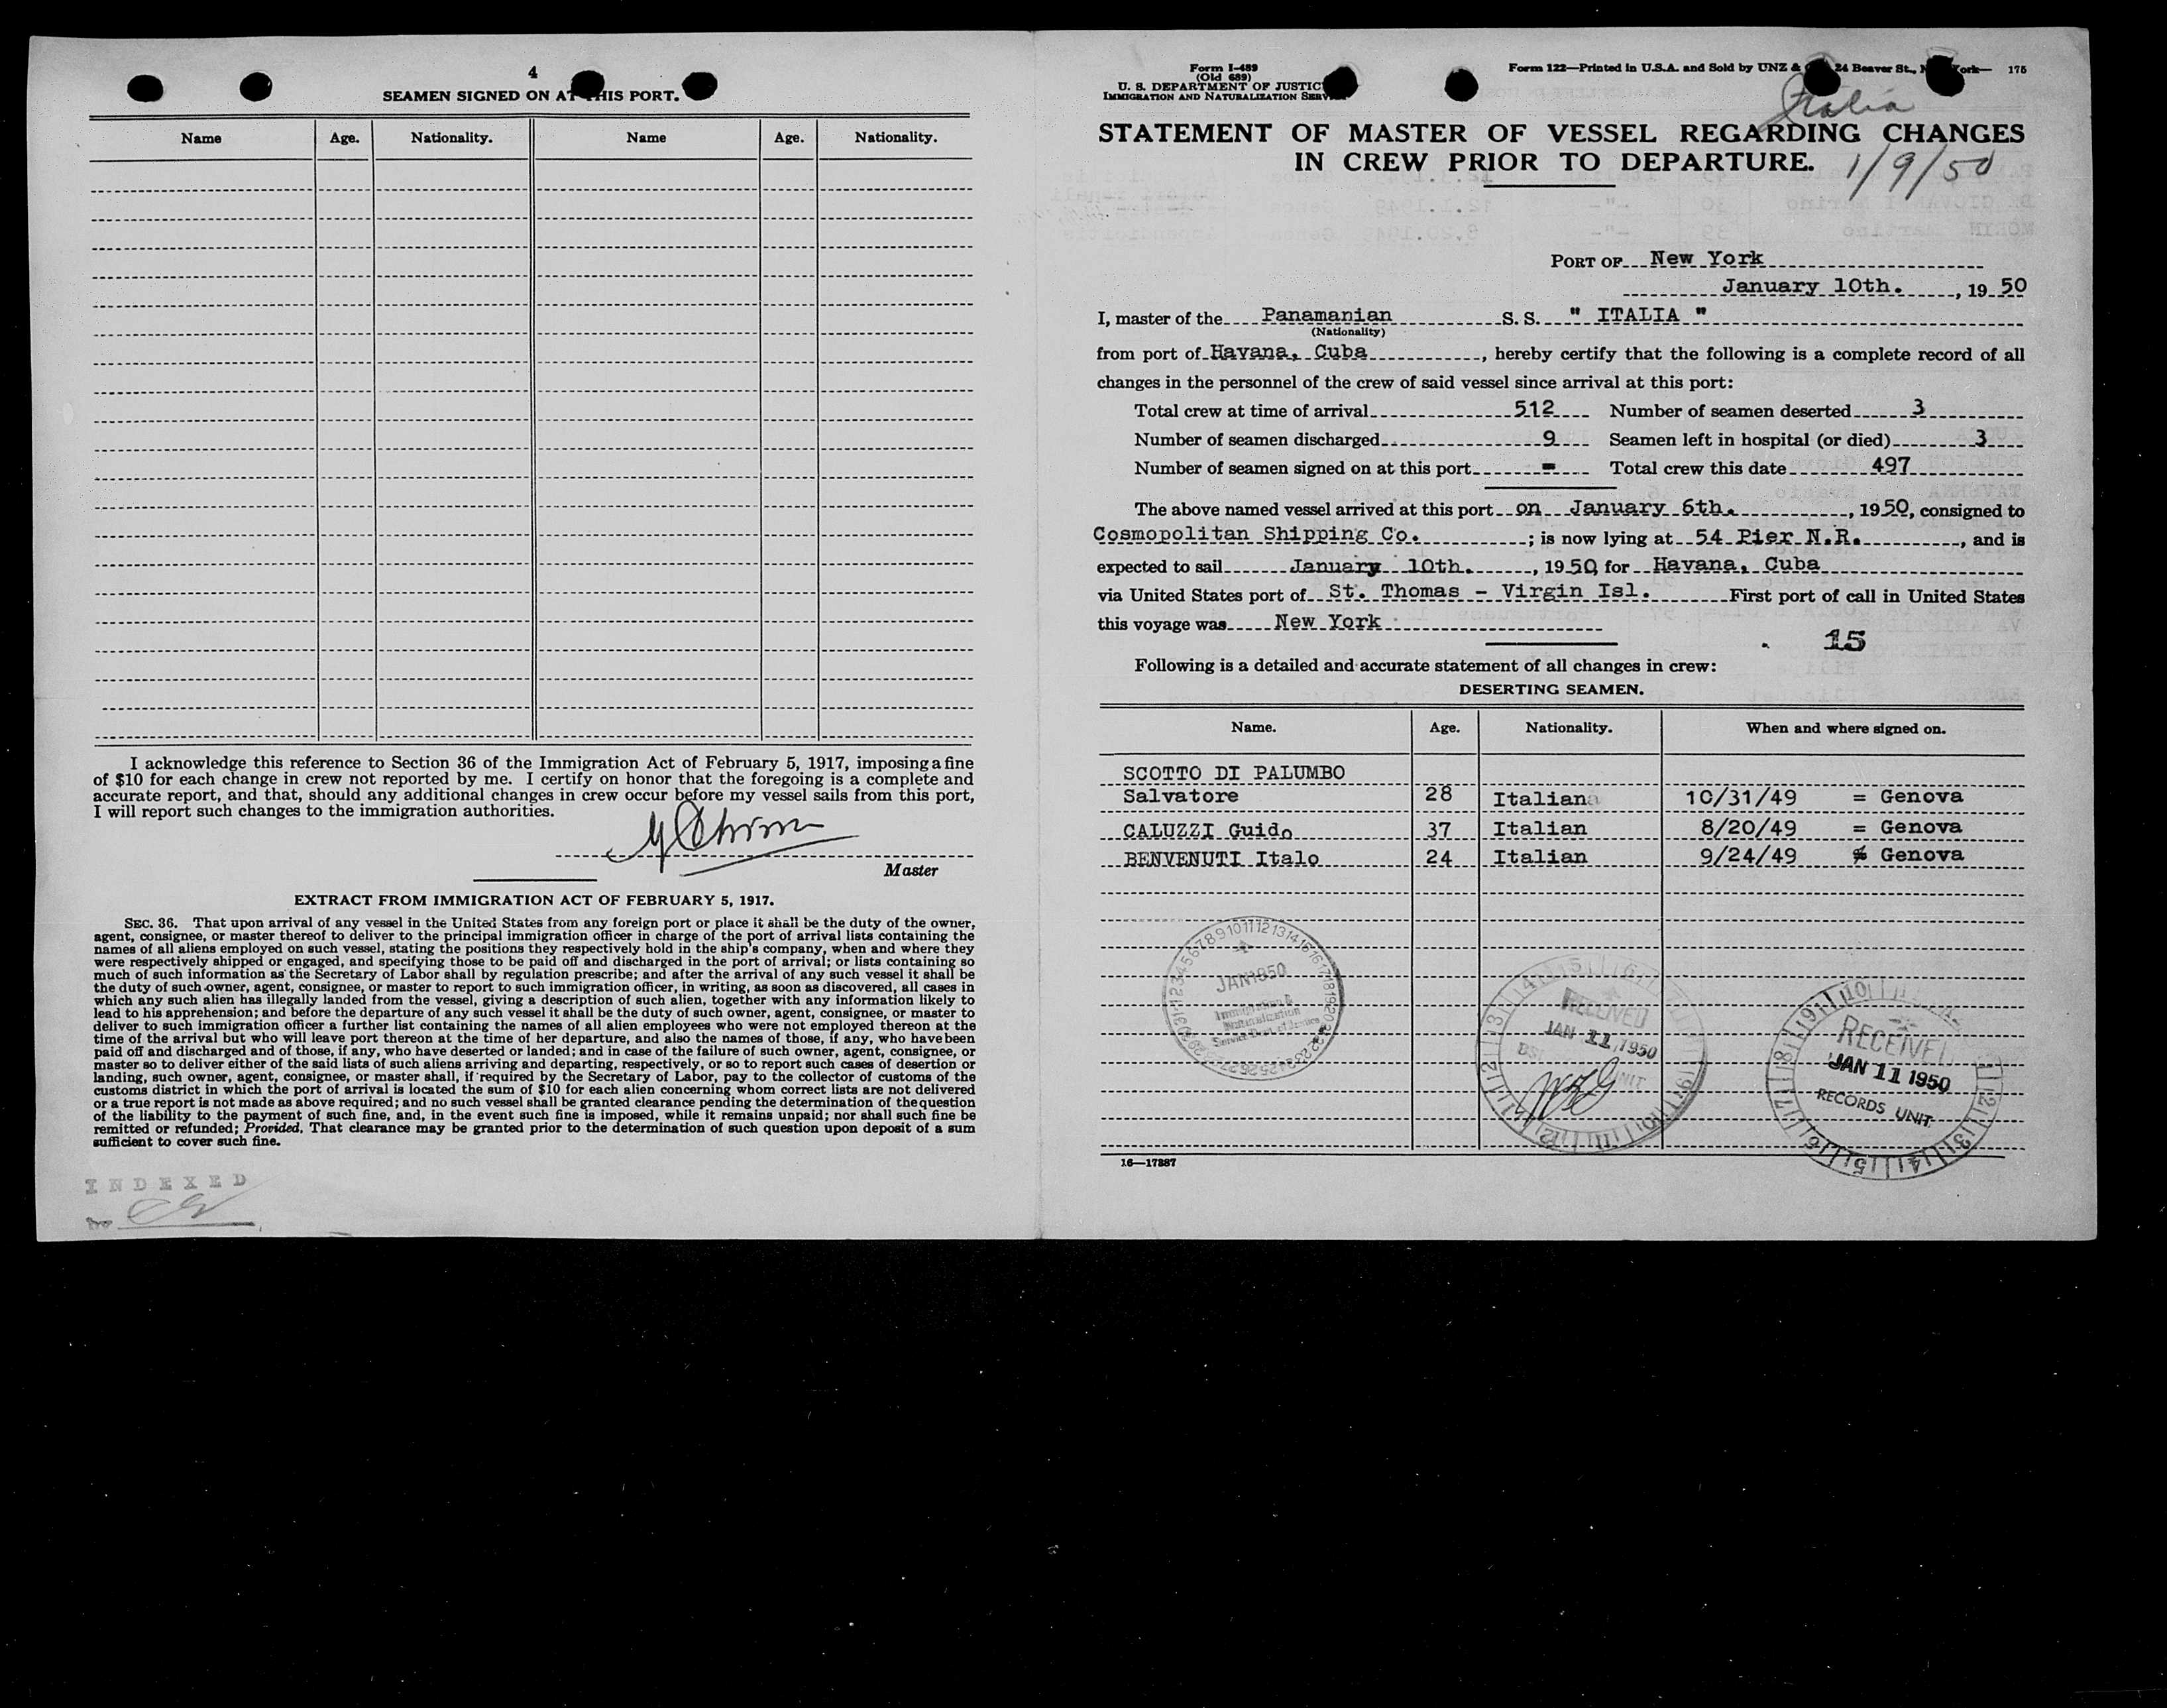 4
SEAMEN SIGNED ON AT THIS PORT.
Name Age. Nationality. Name Age. Nationality.
I acknowledge this reference to Section 36 of the Immigration Act of February 5, 1917, imposing a fine
of $10 for each change in crew not reported by me. I certify on honor that the foregoing is a complete and
accurate report, and that, should any additional changes in crew occur before my vessel sails from this port,
I will report such changes to the immigration authorities.
Master
EXTRACT FROM IMMIGRATION ACT OF FEBRUARY 5, 1917.
SEC. 36. That upon arrival of any vessel in the United States from any foreign port or place it shall be the duty of the owner,
agent, consignee, or master thereof to deliver to the principal immigration officer in charge of the port of arrival lists containing the
names of all aliens employed on such vessel, stating the positions they respectively hold in the ship's company, when and where they
were respectively shipped or engaged, and specifying those to be paid off and discharged in the port of arrival; or lists containing so
much of such information as the Secretary of Labor shall by regulation prescribe; and after the arrival of any such vessel it shall be
the duty of such owner, agent, consignee, or master to report to such immigration officer, in writing, as soon as discovered, all cases in
which any such alien has illegally landed from the vessel, giving a description of such alien, together with any information likely to
lead to his apprehension; and before the departure of any such vessel it shall be the duty of such owner, agent, consignee, or master to
deliver to such immigration officer a further list containing the names of all alien employees who were not employed thereon at the
time of the arrival but who will leave port thereon at the time of her departure, and also the names of those, if any, who have been
paid off and discharged and of those, if any, who have deserted or landed; and in case of the failure of such owner, agent, consignee, or
master so to deliver either of the said lists of such aliens arriving and departing, respectively, or so to report such cases of desertion or
landing, such owner, agent, consignee, or master shall, if required by the Secretary of Labor, pay to the collector of customs of the
customs district in which the port of arrival is located the sum of $10 for each alien concerning whom correct lists are not delivered
or a true report is not made as above required; and no such vessel shall be granted clearance pending the determination of the question
of the liability to the payment of such fine, and, in the event such fine is imposed, while it remains unpaid; nor shall such fine be
remitted or refunded; Provided, That clearance may be granted prior to the determination of such question upon deposit of a sum
sufficient to cover such fine.
INDEXED
by
Form I-489
(Old 689)
U. S. DEPARTMENT OF JUSTICE
IMMIGRATION AND NATURALIZATION SERVICE
Form 122—Printed in U.S.A. and Sold by UNZ & 24 Beaver St., New York— 175
Italia
STATEMENT OF MASTER OF VESSEL REGARDING CHANGES
IN CREW PRIOR TO DEPARTURE.
1/9/50
PORT OF New York
January 10th. , 19 50
I, master of the Panamanian S. S. " ITALIA "
(Nationality)
from port of Havana, Cuba , hereby certify that the following is a complete record of all
changes in the personnel of the crew of said vessel since arrival at this port:
Total crew at time of arrival 512 Number of seamen deserted 3
Number of seamen discharged 9 Seamen left in hospital (or died) 3
Number of seamen signed on at this port - Total crew this date 497
The above named vessel arrived at this port on January 6th. , 1950, consigned to
Cosmopolitan Shipping Co. ; is now lying at 54 Pier N.R. , and is
expected to sail January 10th. , 1950 for Havana, Cuba
via United States port of St. Thomas - Virgin Isl. First port of call in United States
this voyage was New York
15
Following is a detailed and accurate statement of all changes in crew:
DESERTING SEAMEN.
Name. Age. Nationality. When and where signed on.
SCOTTO DI PALUMBO
Salvatore 28 Italian 10/31/49 = Genova
CALUZZI Guido 37 Italian 8/20/49 = Genova
BENVENUTI Italo 24 Italian 9/24/49 Genova
JAN 1950
Immigration &
Naturalization
Service Dept. of Justice
RECEIVED
JAN 11 1950
RECEIVED
JAN 11 1950
RECORDS UNIT
16—17887